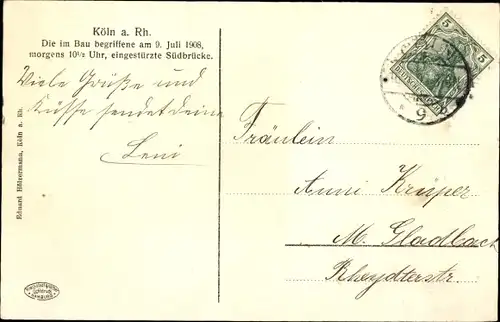 Köln a. Rh.
Die im Bau begriffene am 9. Juli 1908,
morgens 10½ Uhr, eingestürzte Südbrücke.
Viele Grüße und
Küsse sendet deine
Leni
Eduard Hölzermann, Köln a. Rh.
5 5
Fräulein
Anni Krüper
M. Gladbach
Rheydterstr.